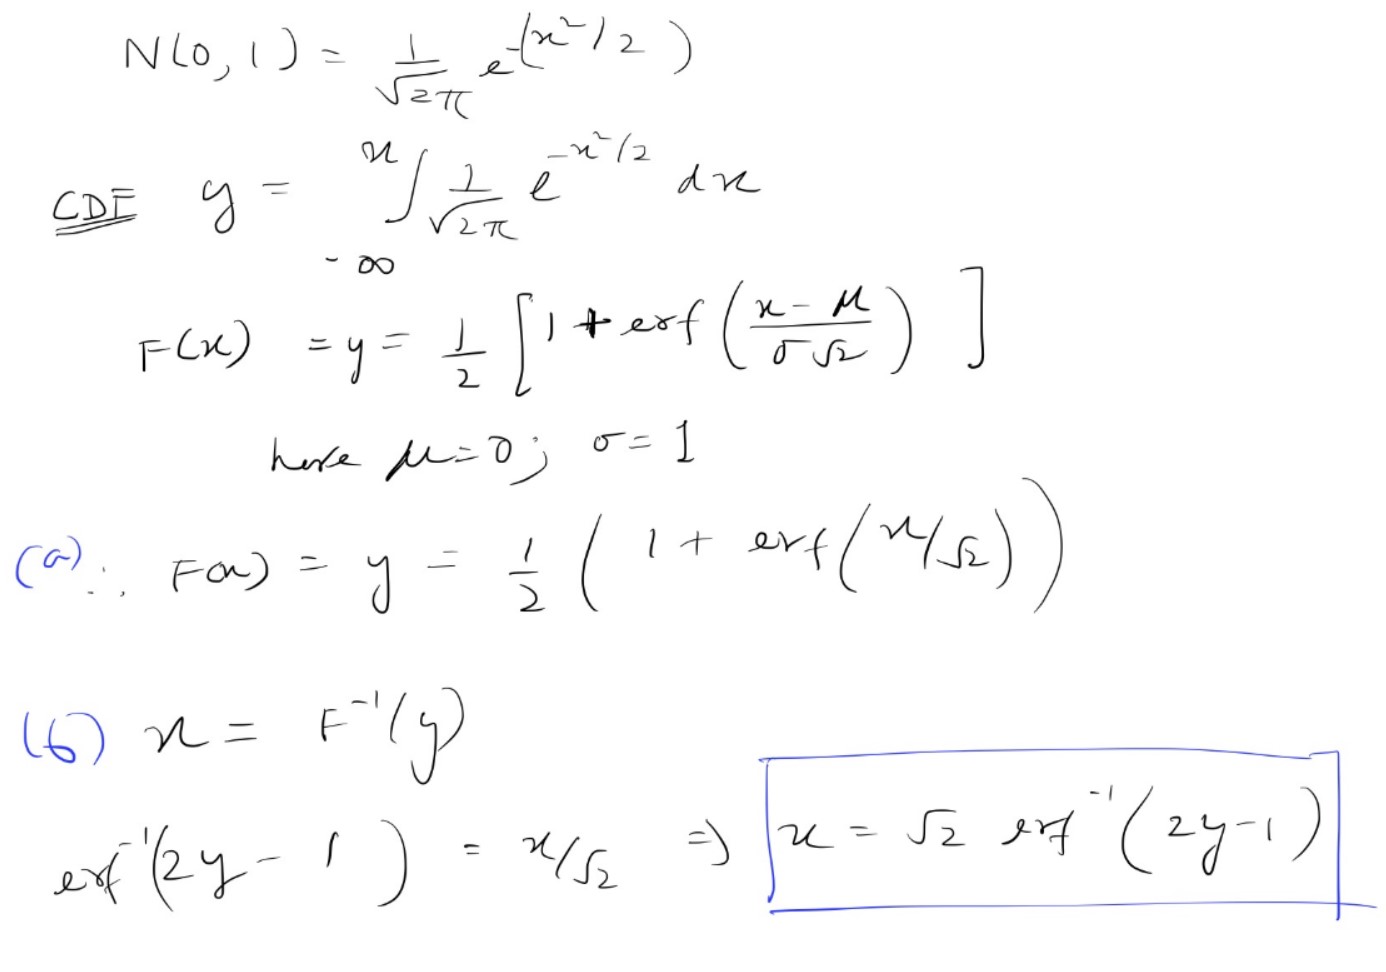 N(0, 1) = 1/√2π e^-(x²/2)
CDF y = ∫_{-∞}^{x} 1/√2π e^{-x²/2} dx
F(x) = y = 1/2 [1 + erf((x - μ)/(σ√2))]
here μ=0; σ=1
(a) ∴ F(x) = y = 1/2 (1 + erf(x/√2))
(b) x = F⁻¹(y)
erf⁻¹(2y - 1) = x/√2 ⇒ x = √2 erf⁻¹(2y-1)